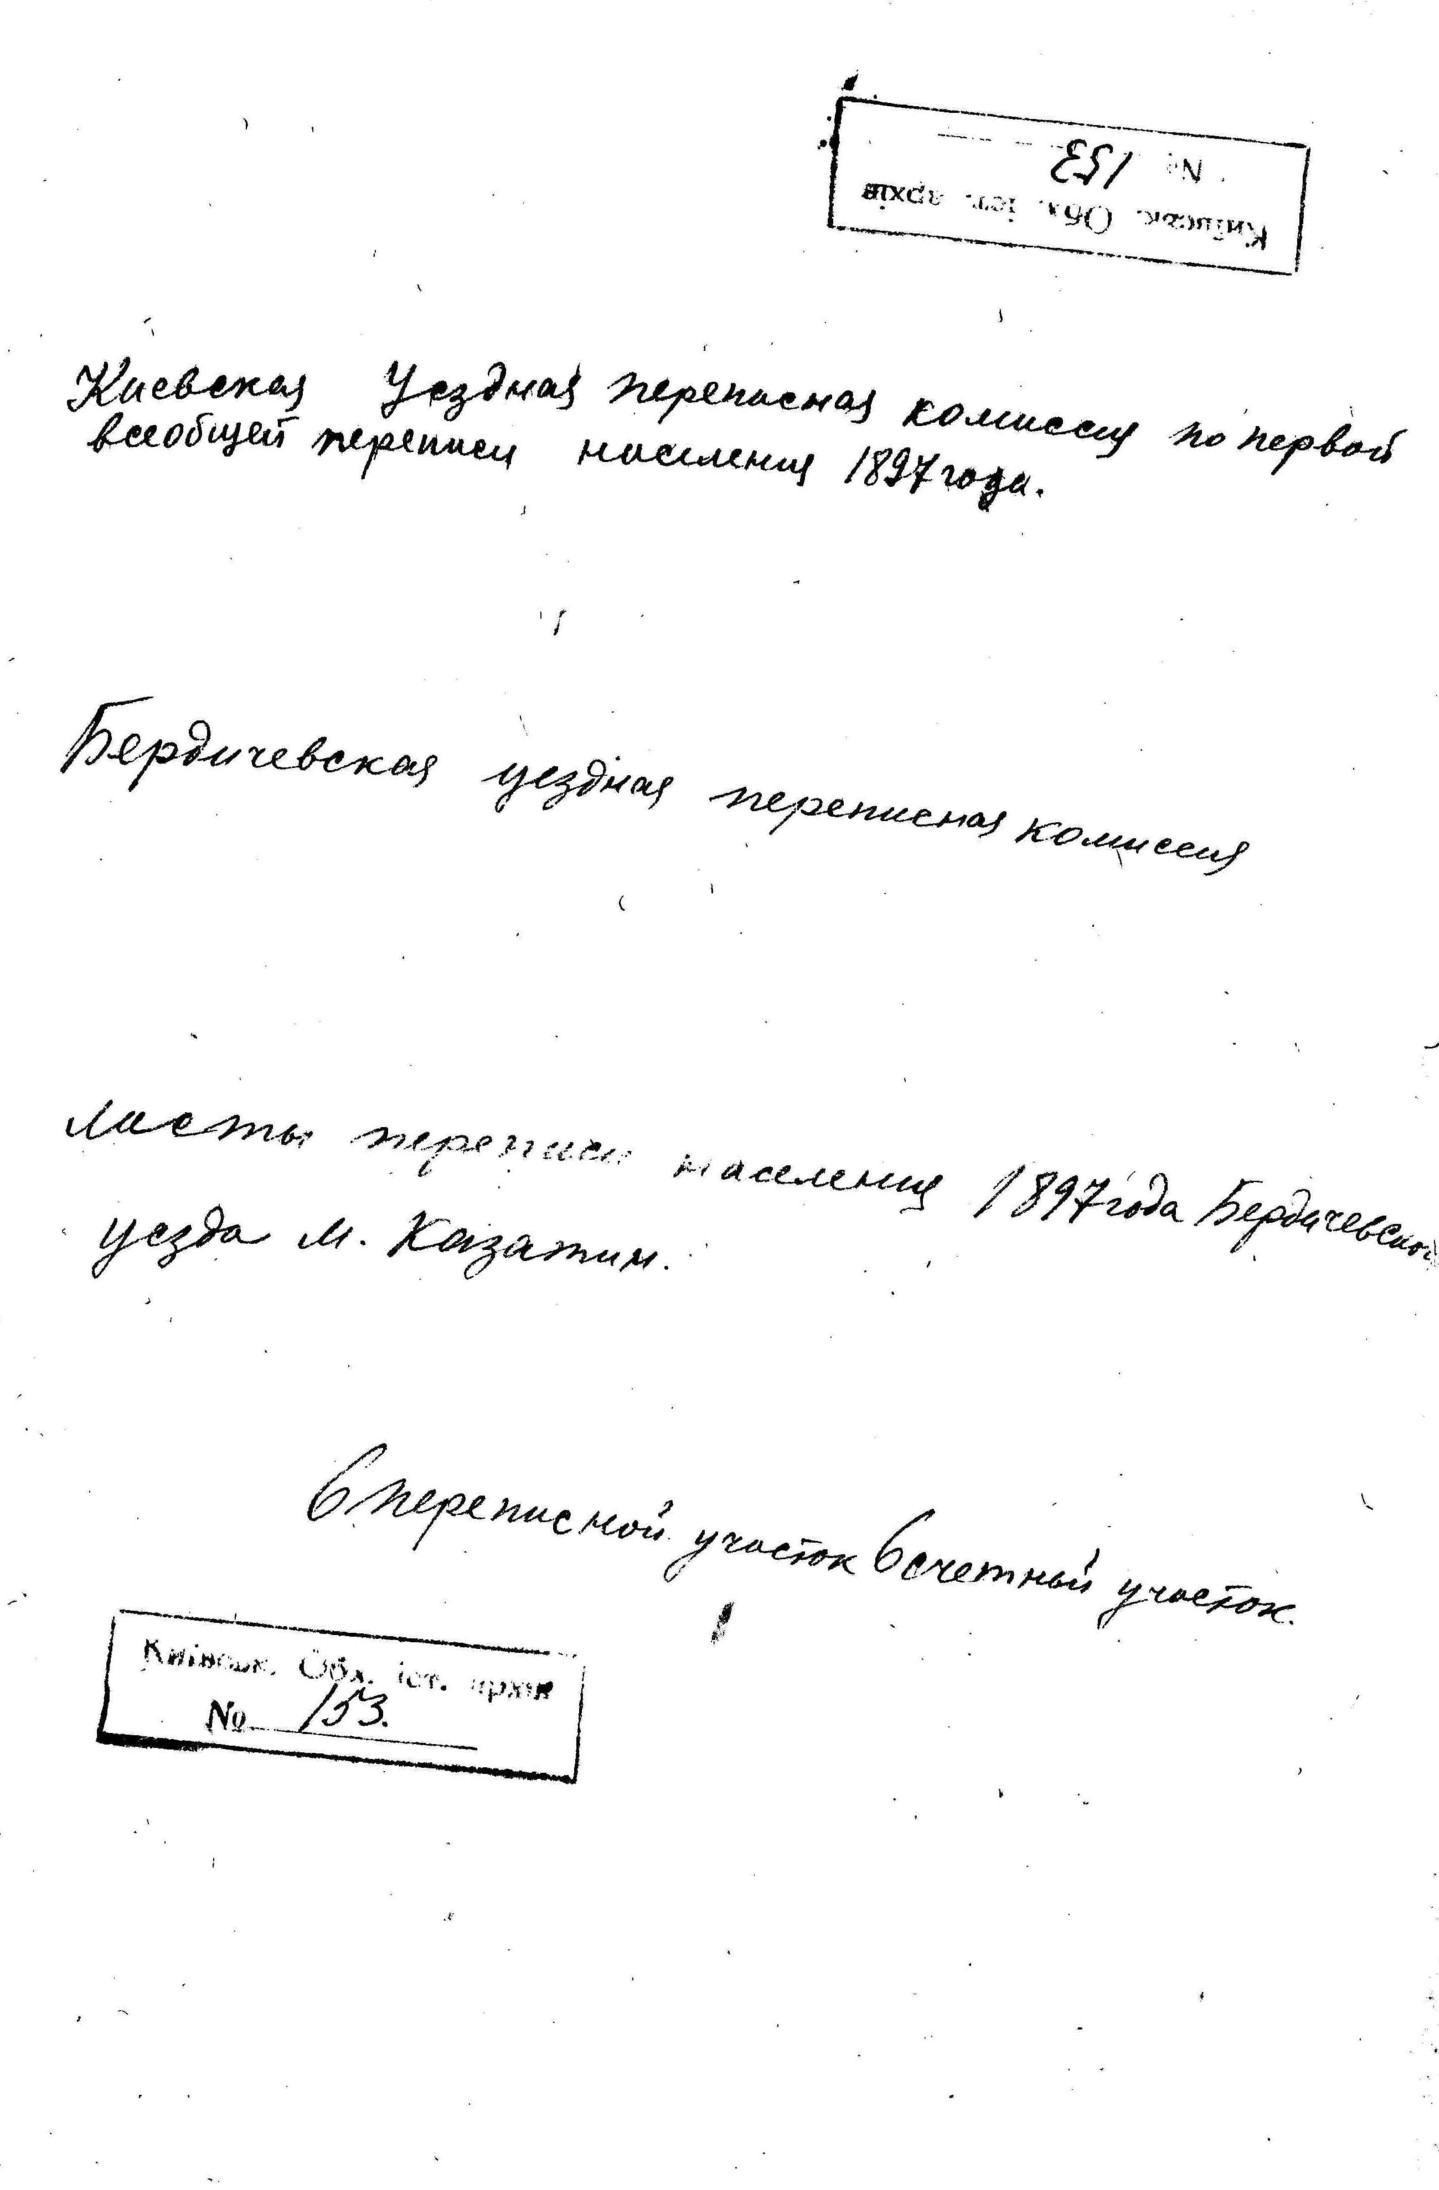 Київськ. Обл. іст. архів
№ 153
Киевская Уездная переписная комиссия по первой
всеобщей переписи населения 1897 года.
Бердичевская уездная переписная комиссия
листы переписи населения 1897 года Бердичевской
уезда м. Казатин.
6 переписной участок 6 счетный участок.
Київськ. Обл. іст. архів
№ 153.